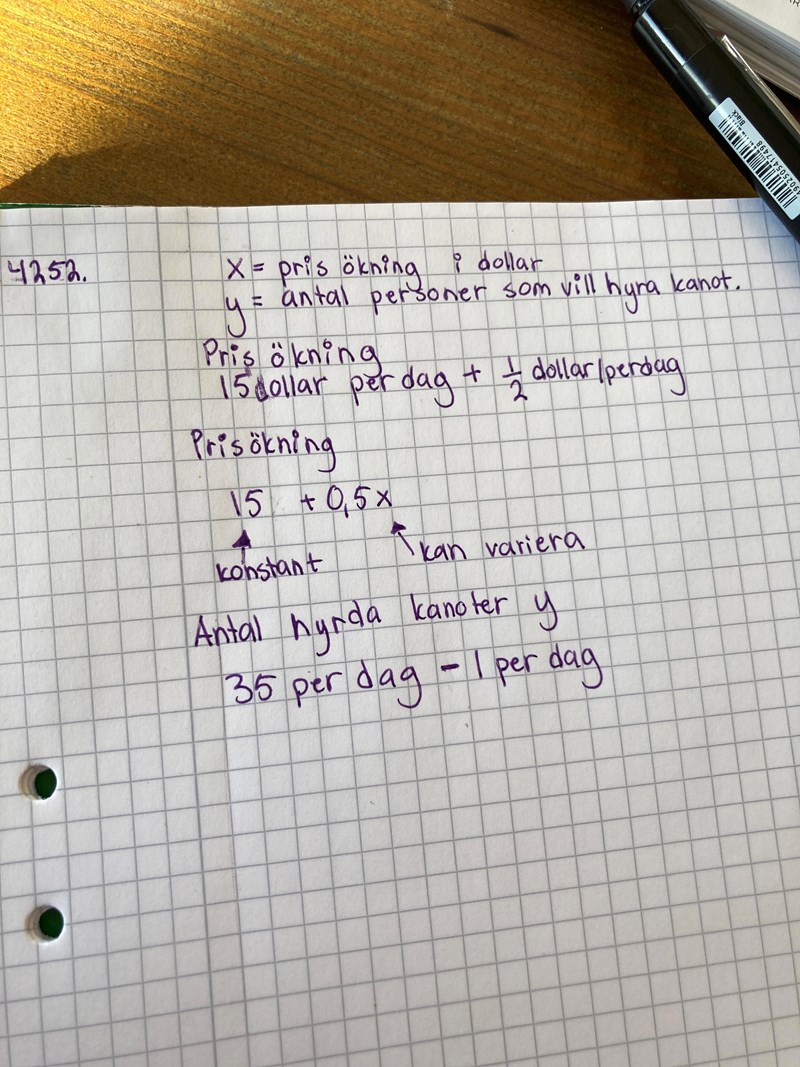 4252.
x = pris ökning i dollar
y = antal personer som vill hyra kanot.
Pris ökning
15 dollar per dag + 1/2 dollar/perdag
Prisökning
15 + 0,5x
konstant
kan variera
Antal hyrda kanoter y
35 per dag - 1 per dag
Black